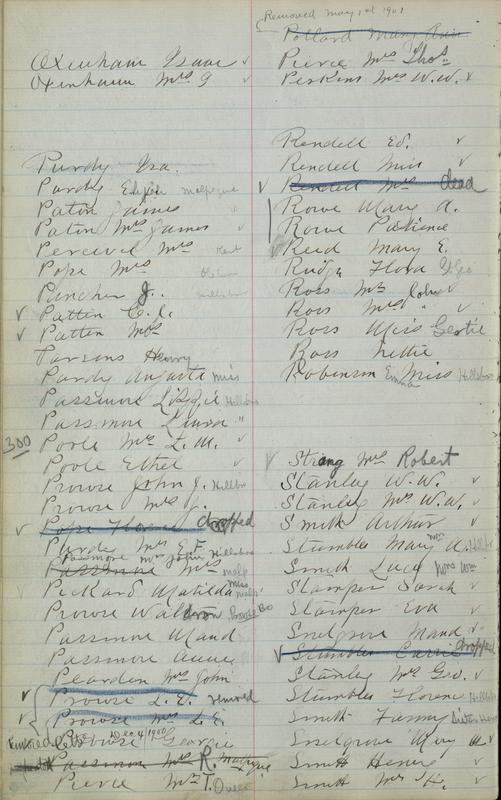 Oxenham Isaac
Oxenham Mrs I
Purdy Isa.
Purdy Eliza Malpeque
Paton James
Paton Mrs James
Percival Mrs Kent
Pope Mrs
Puncher J. Hillsboro
Patten C. J.
Patten Mrs
Parsons Henry
Purdy Augusta Miss
Passmore Lizzie Hillsboro
Passmore Laura "
300 Poole Mrs L. M.
Poole Ethel
Prowse John J. Hillsboro
Prowse Mrs J.
Pope Florence dropped
Purdy Mrs E. F.
Passmore Mrs John Hillsboro
Passmore Mrs Malp
Pickard Matilda Miss Malp
Prowse Waldron
Passmore Maud
Passmore Annie
Pearden Mrs John
Prowse L. E. removed
Prowse Mrs L. E.
removed Dec 4 1900
Prowse Georgie
Passmore Mrs R. Malpeque
Pierce Mrs T. Queen
Removed May 1st 1901
Pollard Mary Ann
Pierce Mrs Thos.
Perkins Mrs W. W.
Rendell Ed.
Rendell Miss
Rendell Mrs dead
Rowe Mary A.
Rowe Patience
Reid Mary E.
Flora St Geo
Ross Mr John
Ross Mrs "
Ross Miss Gertie
Ross Nettie
Robinson Emma Miss Hillsboro
Strong Mrs Robert
Stanley W. W.
Stanley Mrs W. W.
Smith Arthur
Stumbles Mary A. Mrs Hillsboro
Smith Lucy Mrs Wm
Stamper Sarah
Stamper Eva
Snelgrove Maud
Stumbles Carrie dropped
Stanley Mrs Geo.
Stumbles Florence Hillsboro
Smith Fanny
Snelgrove Mary A.
Smith Henry
Smith Mrs H.